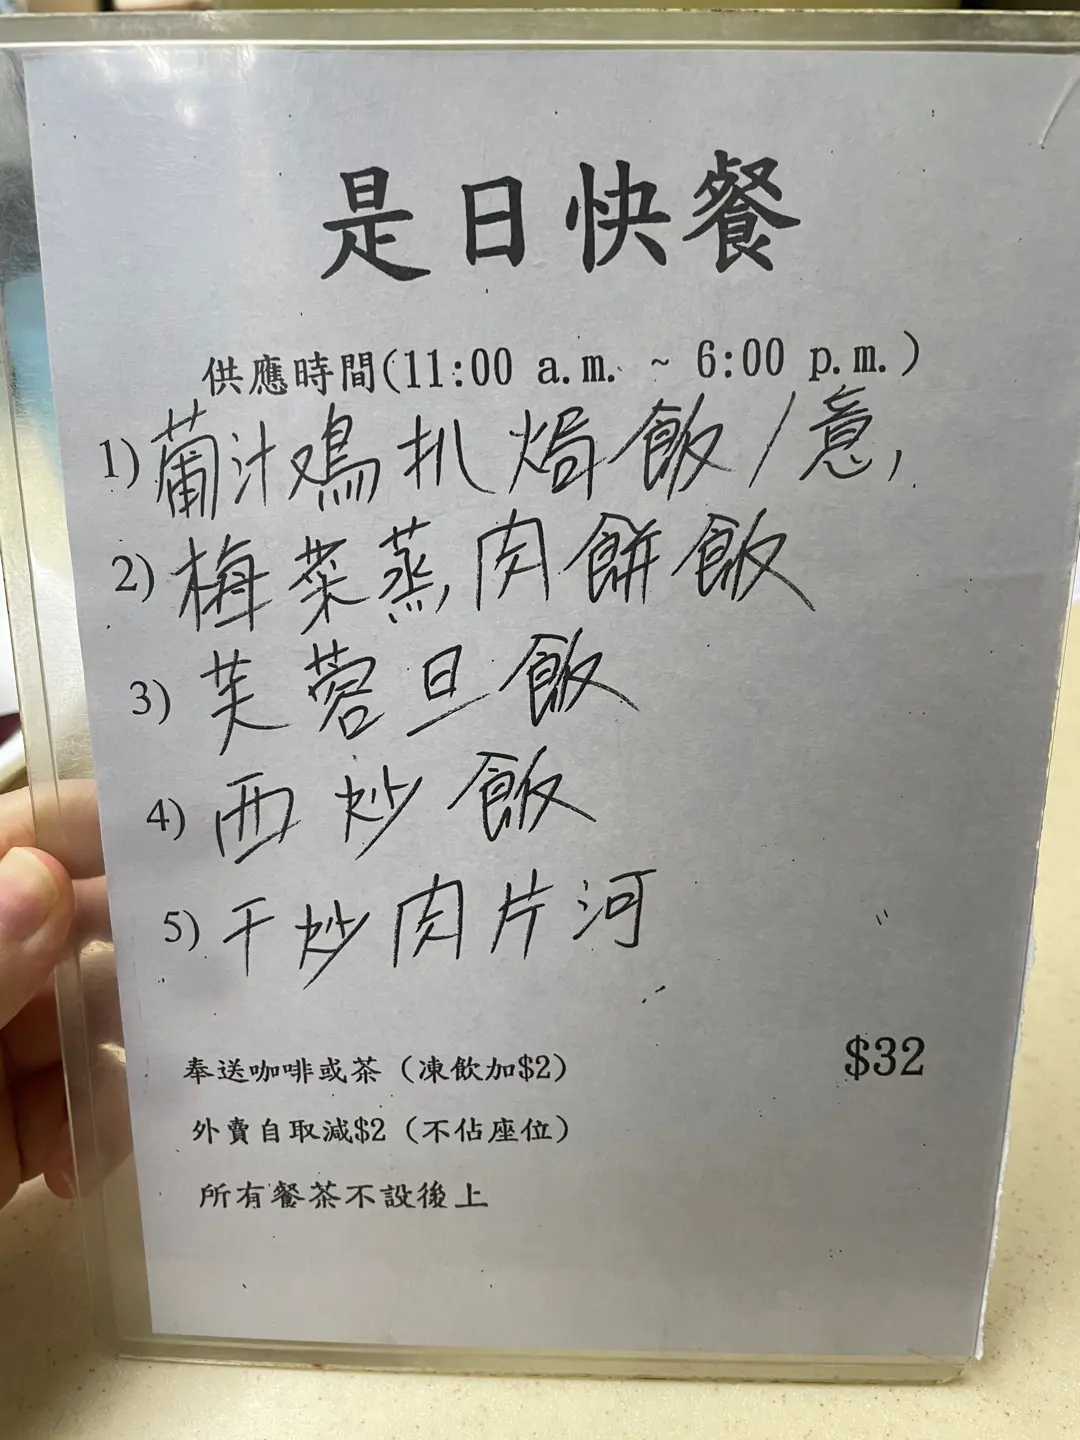 是日快餐
供應時間(11:00 a.m. ~ 6:00 p.m.)
1) 葡汁鸡扒焗飯/意,
2) 梅菜蒸肉餅飯
3) 芙蓉旦飯
4) 西炒飯
5) 干炒肉片河
奉送咖啡或茶 (凍飲加$2)
$32
外賣自取減$2 (不佔座位)
所有餐茶不設後上